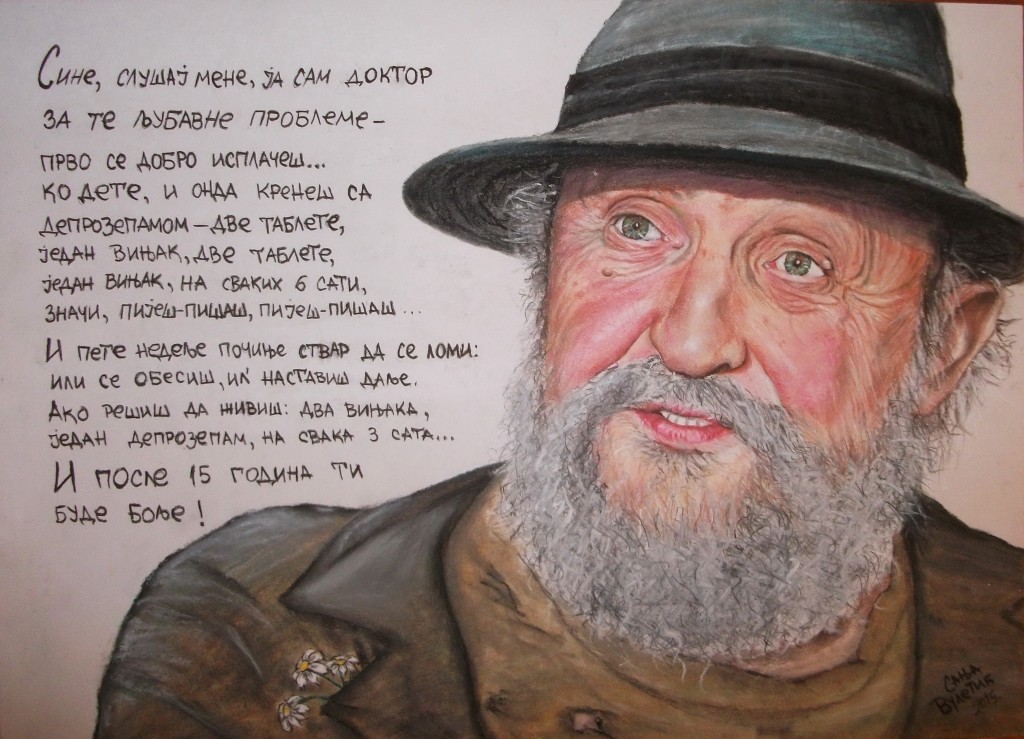 Сине, слушај мене, ја сам доктор
за те љубавне проблеме–
прво се добро исплачеш...
ко дете, и онда кренеш са
депрозепамом–две таблете,
један вињак, две таблете,
један вињак, на сваких 6 сати,
значи, пијеш-пишаш, пијеш-пишаш...
И пете недеље почиње ствар да се ломи:
или се обесиш, ил' наставиш даље.
Ако решиш да живиш: два вињака,
један депрозепам, на свака 3 сата...
И после 15 година ти
буде боље!
Сања
Вулетић
2015.